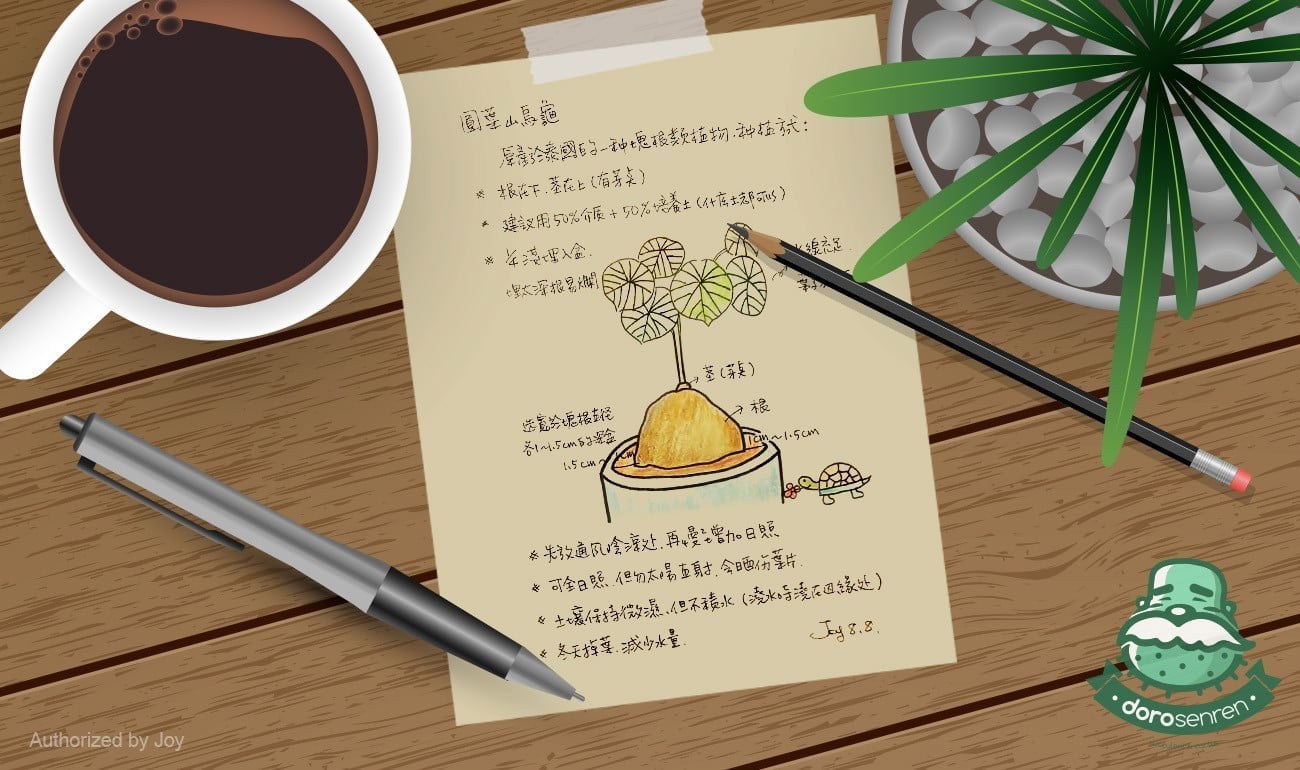 圓葉山烏龜
原產於泰國的一种塊根類植物.种植方式:
* 根在下.莖在上(有芽點)
* 建議用50%介质+50%培養土(什麼土都可以)
* 半淺埋入盆.
埋太深根易爛
水線充足.
葉子
莖(芽點)
根
選寬於塊根直徑
各1~1.5cm的深盆
1.5cm~1cm
1cm~1.5cm
* 先放通風陰涼处.再慢慢增加日照
* 可全日照.但勿太陽直射.会晒伤葉片.
* 土壤保持微濕.但不積水(澆水時澆在四週緣处)
* 冬天掉葉.減少水量.
Joy 8.8.
dorosenren
Authorized by Joy